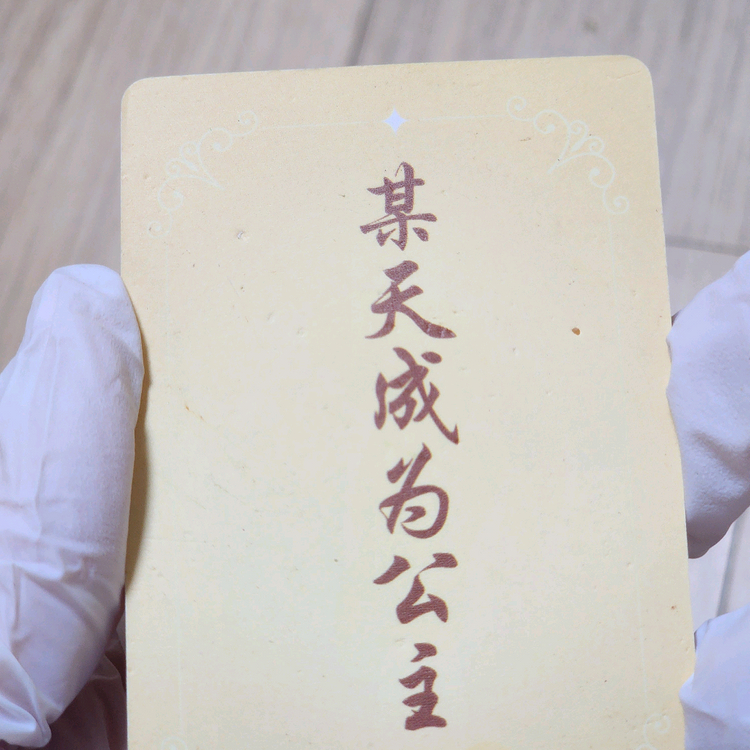 某天成为公主